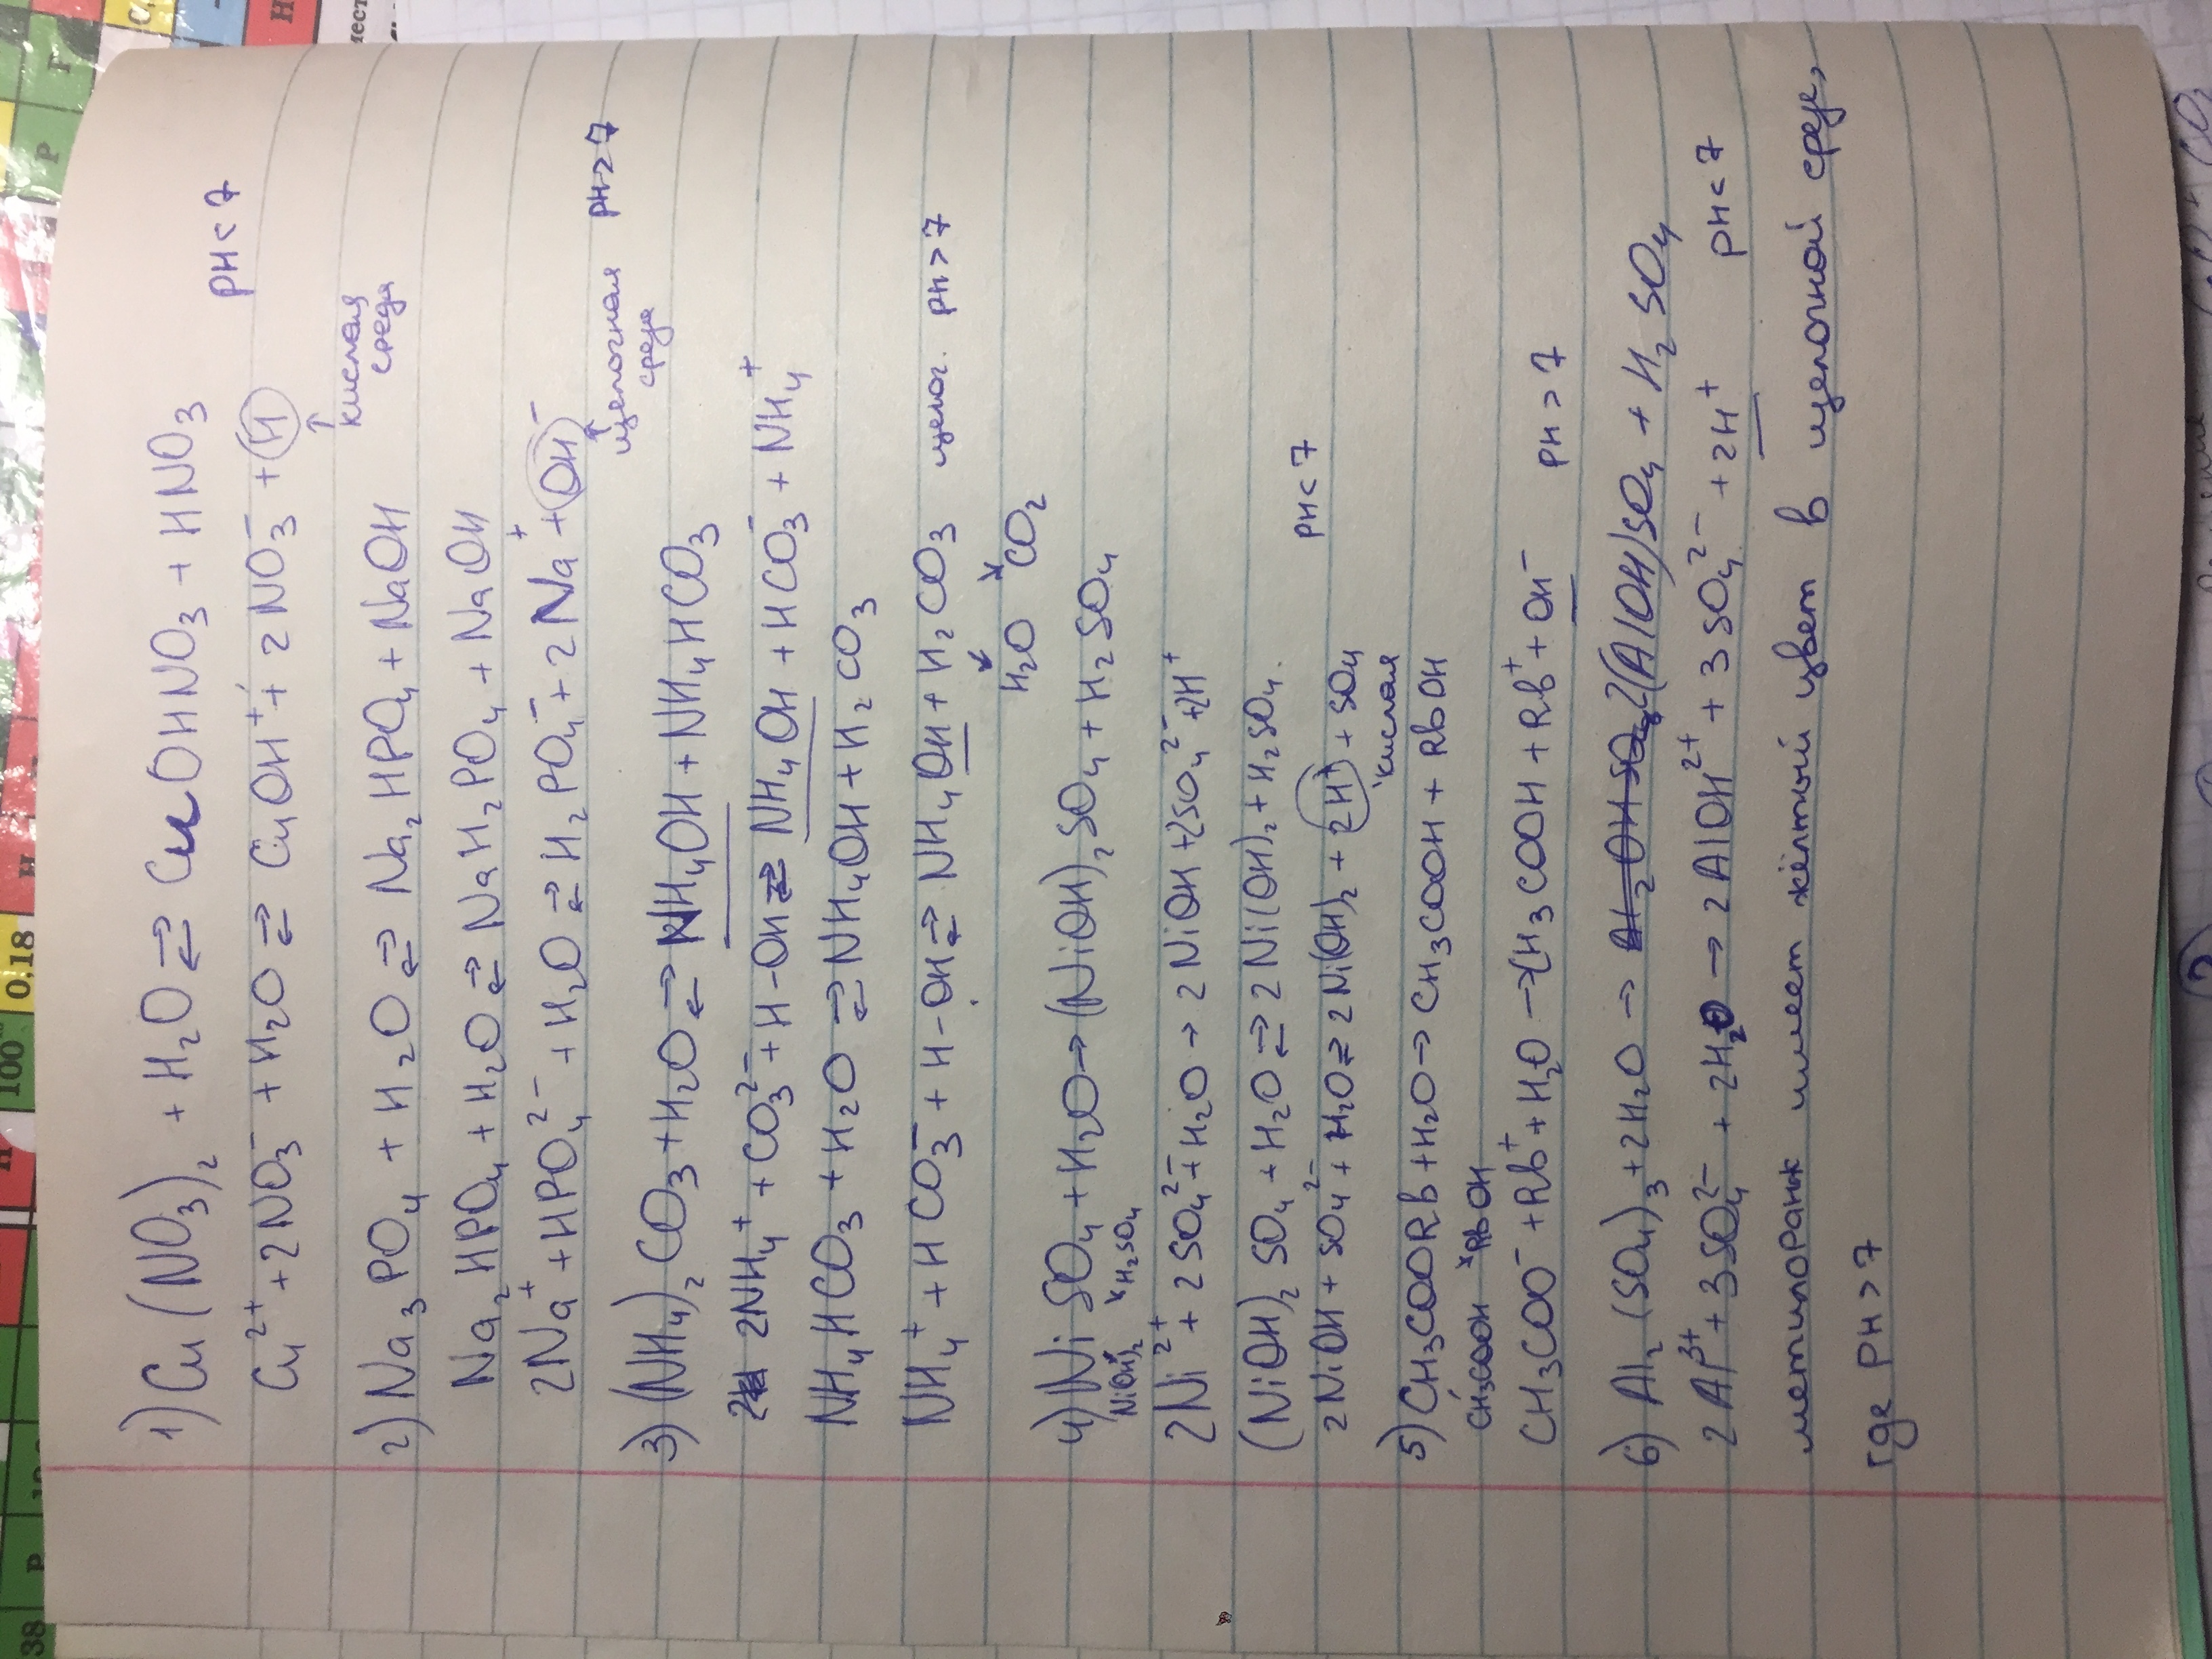 1) Cu(NO₃)₂ + H₂O ⇄ CuOHNO₃ + HNO₃
Cu²⁺ + 2NO₃⁻ + H₂O ⇄ CuOH⁺ + 2NO₃⁻ + H pH < 7
↑ кислая среда
2) Na₃PO₄ + H₂O ⇄ Na₂HPO₄ + NaOH
Na₂HPO₄ + H₂O ⇄ NaH₂PO₄ + NaOH
2Na⁺ + HPO₄²⁻ + H₂O ⇄ H₂PO₄⁻ + 2Na⁺ + OH⁻ pH > 7
↑ щелочная среда
3) (NH₄)₂CO₃ + H₂O ⇄ NH₄OH + NH₄HCO₃
2NH₄⁺ + CO₃²⁻ + H-OH ⇄ NH₄OH + HCO₃⁻ + NH₄⁺
NH₄HCO₃ + H₂O ⇄ NH₄OH + H₂CO₃
NH₄⁺ + HCO₃⁻ + H-OH ⇄ NH₄OH + H₂CO₃ щелоч. pH > 7
H₂O CO₂
4) NiSO₄ + H₂O → (NiOH)₂SO₄ + H₂SO₄
Ni(OH)₂ H₂SO₄
2Ni²⁺ + 2SO₄²⁻ + H₂O → 2NiOH + 2SO₄²⁻ + 2H⁺
(NiOH)₂SO₄ + H₂O ⇄ 2Ni(OH)₂ + H₂SO₄
2NiOH + SO₄²⁻ + H₂O ⇄ 2Ni(OH)₂ + 2H⁺ + SO₄ pH < 7
кислая
5) CH₃COORb + H₂O → CH₃COOH + RbOH
CH₃COOH RbOH
CH₃COO⁻ + Rb⁺ + H₂O → CH₃COOH + Rb⁺ + OH⁻ pH > 7
6) Al₂(SO₄)₃ + 2H₂O → 2(AlOH)SO₄ + H₂SO₄
2Al³⁺ + 3SO₄²⁻ + 2H₂O → 2AlOH²⁺ + 3SO₄²⁻ + 2H⁺ pH < 7
метилоранж имеет жёлтый цвет в щелочной среде,
где pH > 7
0,18
100
38
Р
Н
Р
Г